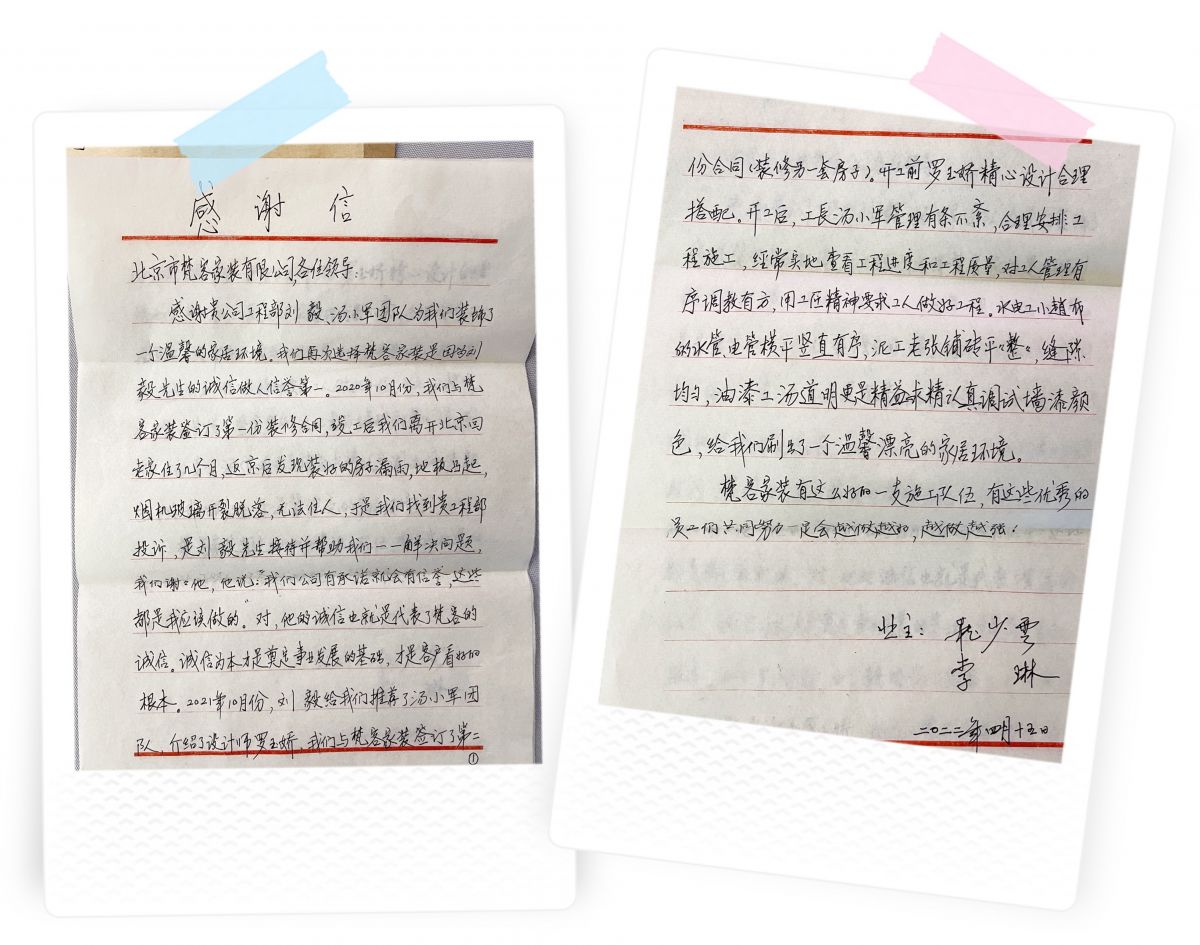 感谢信
北京市梵客家装有限公司各位领导：
感谢贵公司工程部刘毅、汤小军团队为我们装饰了
一个温馨的家居环境。我们再次选择梵客家装是因为刘
毅先生的诚信做人信誉第一。2020年10月份，我们与梵
客家装签订了第一份装修合同，竣工后我们离开北京回
老家住了几个月，返京后发现装好的房子漏雨，地板凸起，
烟机玻璃开裂脱落，无法住人，于是我们找到贵工程部
投诉，是刘毅先生接待并帮助我们一一解决问题，
我们谢谢他，他说："我们公司有承诺就会有信誉，这些
都是我应该做的"。对，他的诚信也就是代表了梵客的
诚信。诚信为本才是奠定事业发展的基础，才是客户看好的
根本。2021年10月份，刘毅给我们推荐了汤小军团
队，介绍了设计师罗玉娇，我们与梵客家装签订了第二
①
份合同（装修另一套房子）。开工前罗玉娇精心设计合理
搭配。开工后，工長汤小军管理有条不紊，合理安排工
程施工，经常实地查看工程进度和工程质量，对工人管理有
序调教有方，用工匠精神要求工人做好工程。水电工小趙布
的水管、电管横平竖直有序，泥工老张铺砖平平整整，缝隙
均匀，油漆工汤道明更是精益求精认真调试墙漆颜
色，给我们刷出了一个温馨漂亮的家居环境。
梵客家装有这么好的一支施工队伍，有这些优秀的
员工们共同努力一定会越做越好，越做越强！
业主： 少雲
李琳
二〇二二年四月十五日